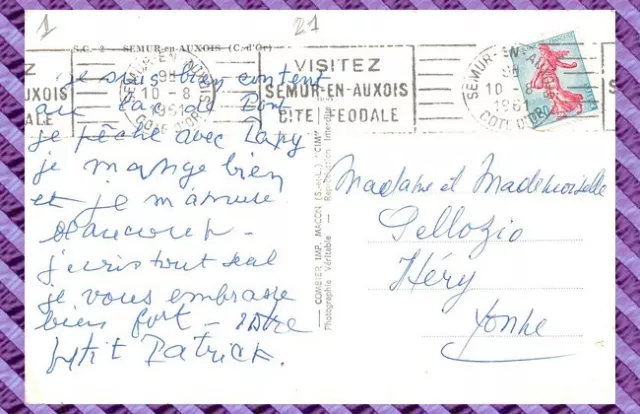 1
21
S.C. - 2 - SEMUR-en-AUXOIS (C.-d'Or)
AUXOIS
DALE
SEMUR-EN-AUXOIS
9H
10-8
1961
COTE D'OR
VISITEZ
SEMUR-EN-AUXOIS
CITE FEODALE
SEMUR-EN-AUXOIS
9H
10-8
1961
COTE D'OR
je suis bien content
au lac de Pont
je pêche avec Papy
je mange bien
et je m'amuse
beaucoup -
j'ecris tout seul
je vous embrasse
bien fort - votre
petit Patrick.
— COMBIER IMP. MACON (S.-et-L.) "CIM"
Photographie Véritable - Reproduction Interdite
Madame et Mademoiselle
Pellozio
Héry
Yonne